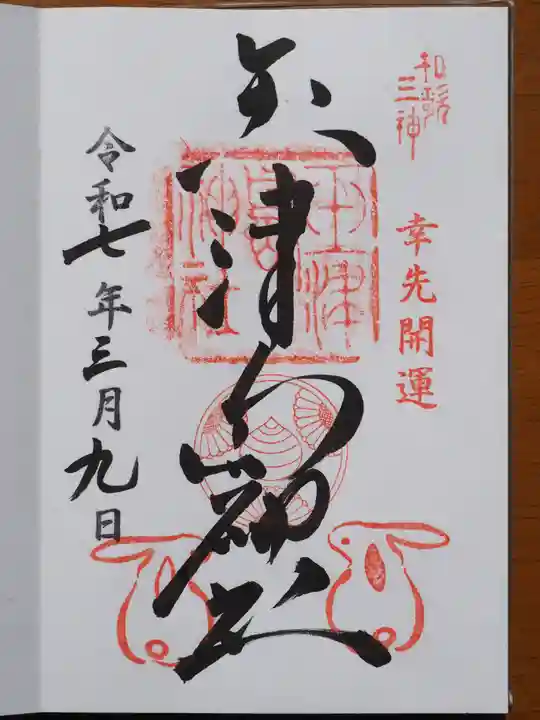 和歌
三神
幸先開運
玉津島神社
玉津
島
神社
令和七年三月九日